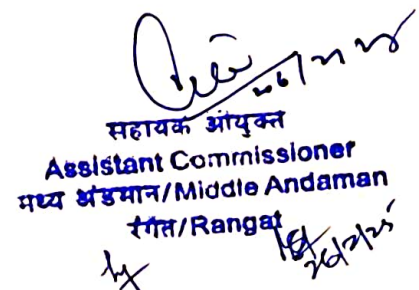 सहायक आयुक्त
Assistant Commissioner
मध्य अंडमान/Middle Andaman
रंगत/Rangat
26/2/25